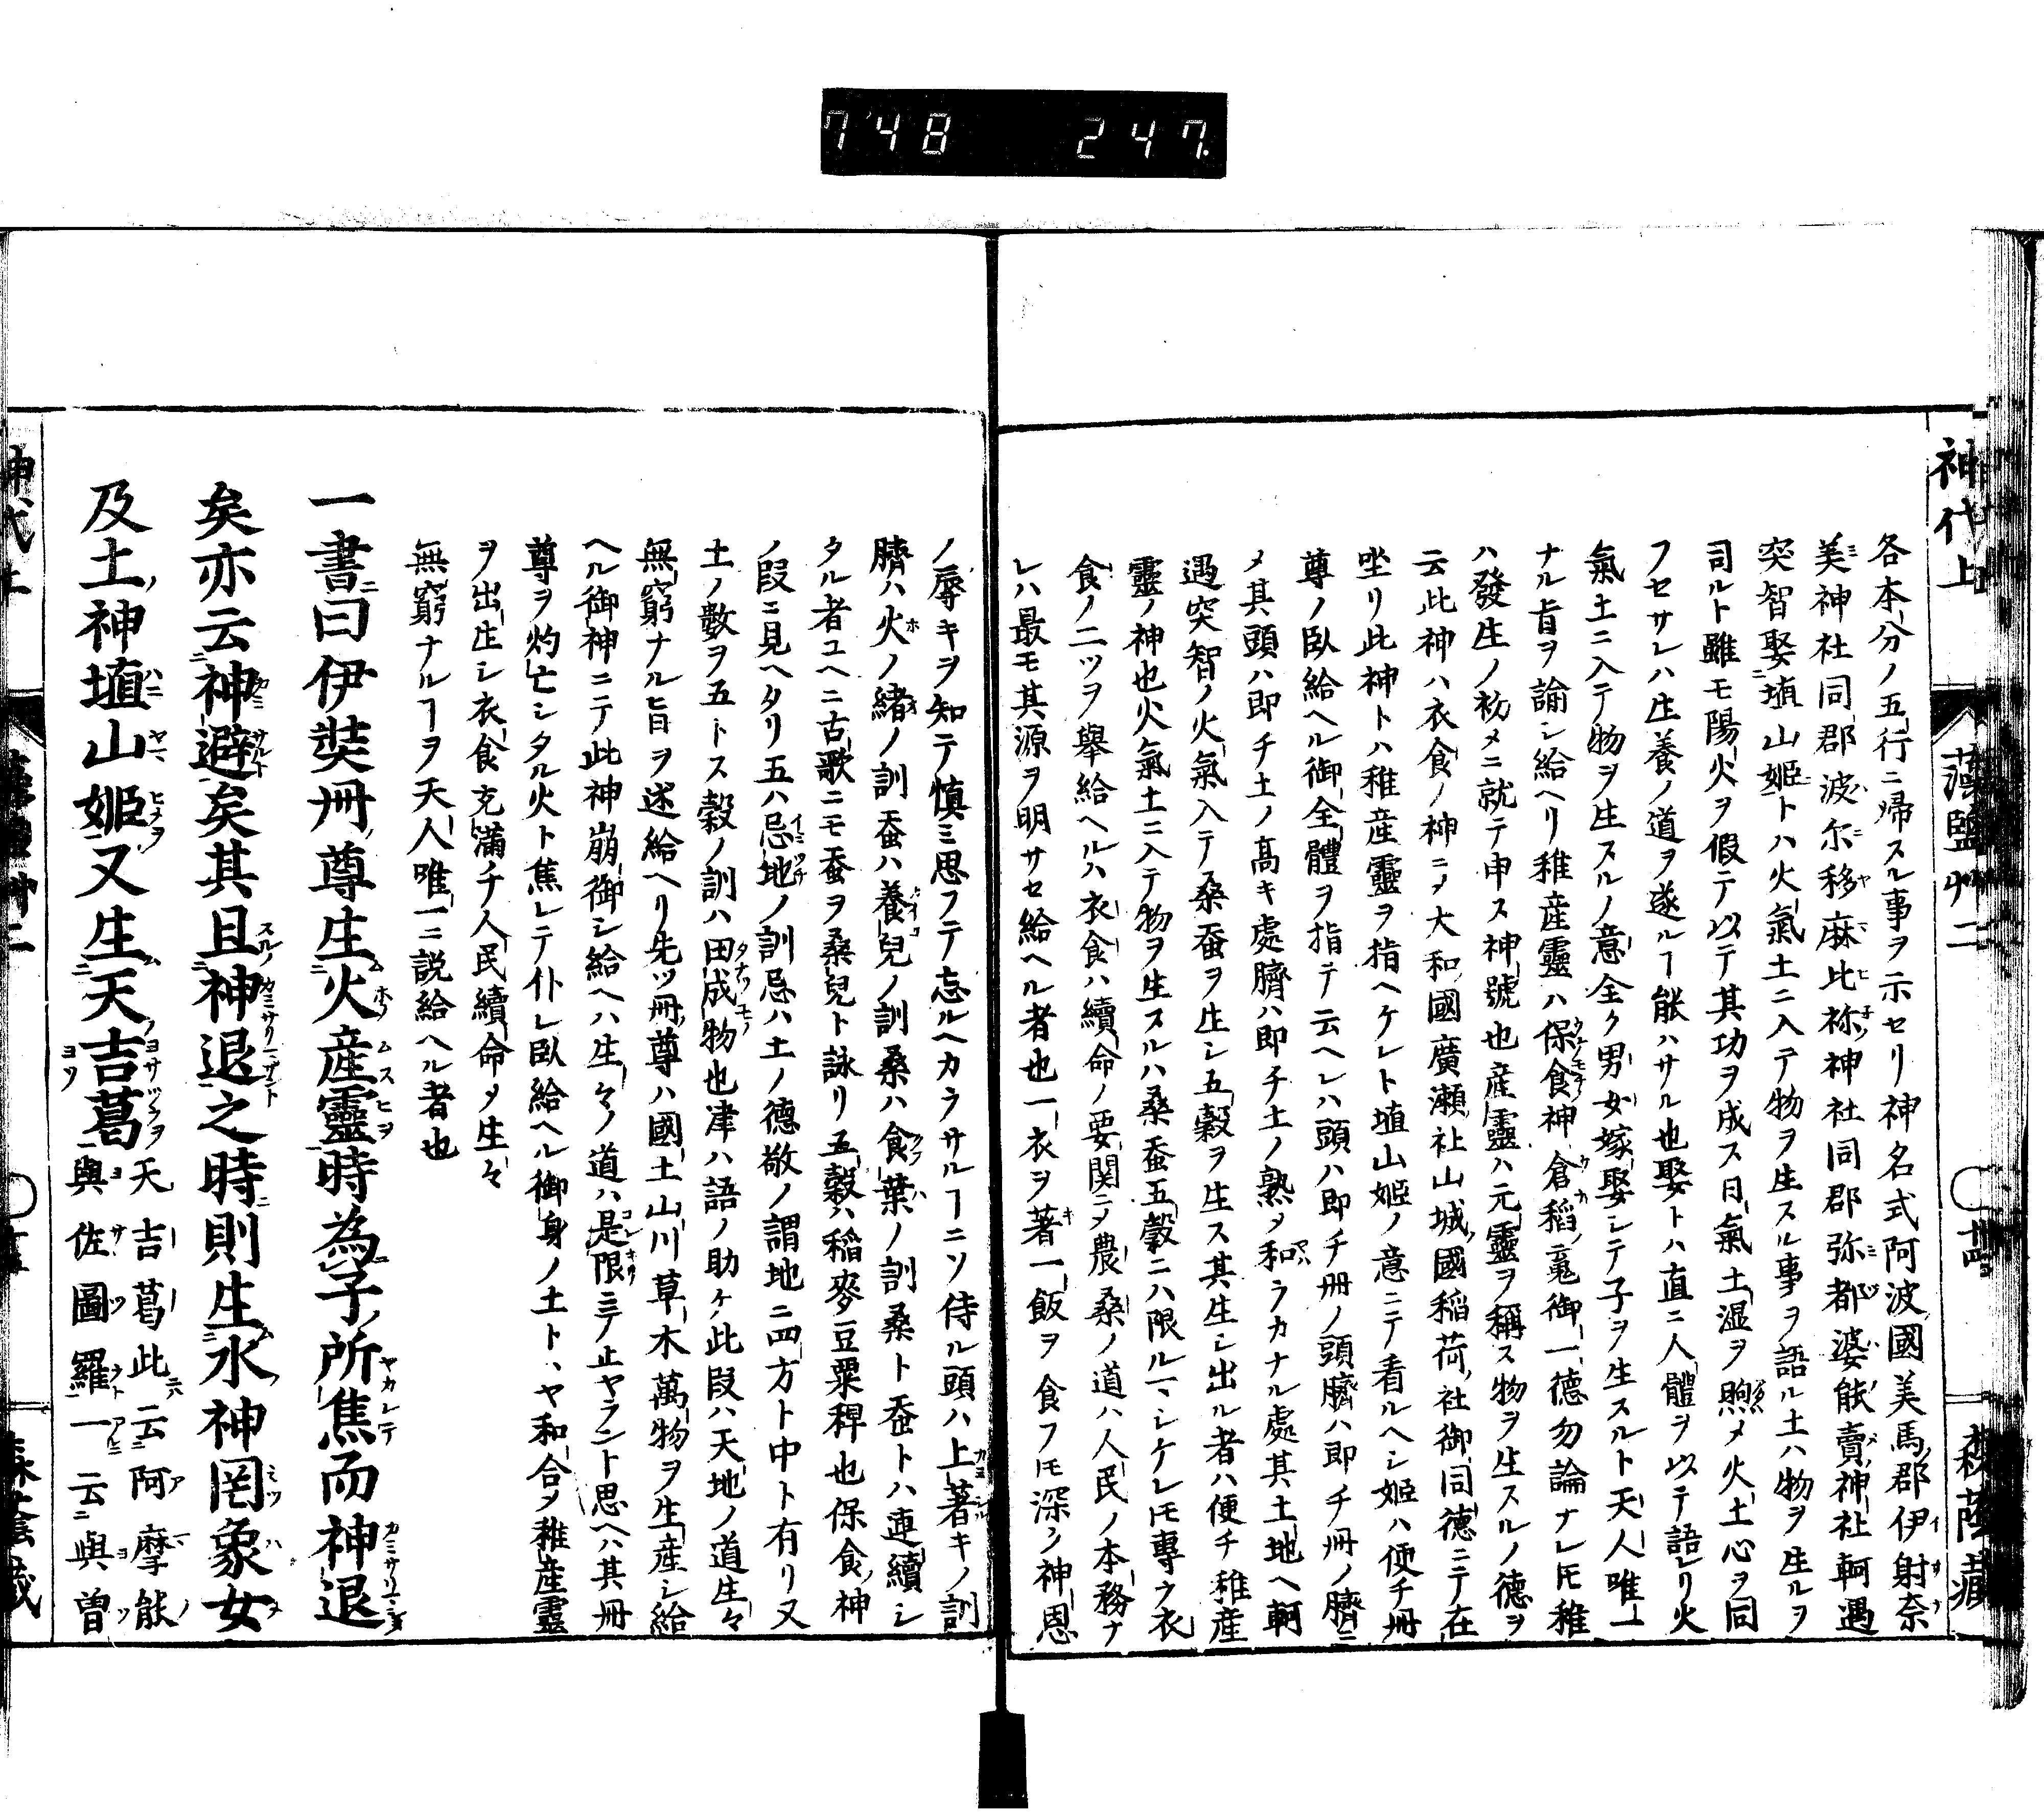 748 247.
神代上 藻鹽艸二 〇廿四
各本分ノ五行ニ帰スル事ヲ示セリ神名式阿波國美馬郡伊射奈
美神社同郡波尓移麻比祢神社同郡弥都婆能賣神社軻遇
突智娶埴山姫トハ火氣土ニ入テ物ヲ生スル事ヲ語ル土ハ物ヲ生ルヲ
司ルト雖モ陽火ヲ假テ以テ其功ヲ成ス日氣土湿ヲ煦メ火土心ヲ同
フセサレハ生養ノ道ヲ遂ルヿ能ハサル也娶トハ直ニ人體ヲ以テ語レリ火
氣土ニ入テ物ヲ生スルノ意全ク男女嫁娶シテ子ヲ生スルト天人唯一
ナル旨ヲ諭シ給ヘリ稚産靈ハ保食神倉稻䰠御一德勿論ナレ𪜈稚
ハ發生ノ初メニ就テ申ス神號也産靈ハ元靈ヲ稱ス物ヲ生スルノ德ヲ
云此神ハ衣食ノ神ニ〆大和國廣瀬社山城國稲荷社御同德ニテ在
坐リ此神トハ稚産靈ヲ指ヘケレト埴山姫ノ意ニテ看ルヘシ姫ハ便チ冊
尊ノ臥給ヘル御全體ヲ指テ云ヘレハ頭ハ即チ冊ノ頭臍ハ即チ冊ノ臍ニ
〆其頭ハ即チ土ノ髙キ處臍ハ即チ土ノ熟〆和ラカナル處其土地ヘ軻
遇突智ノ火氣入テ桑蚕ヲ生シ五穀ヲ生ス其生シ出ル者ハ便チ稚産
靈ノ神也火氣土ニ入テ物ヲ生スルハ桑蚕五穀ニハ限ルマシケレ𪜈專ラ衣
食ノ二ツヲ舉給ヘルハ衣食ハ續命ノ要関ニ〆農桑ノ道ハ人民ノ本務ナ
レハ最モ其源ヲ明サセ給ヘル者也一衣ヲ著一飯ヲ食フモ深ク神恩
ノ辱キヲ知テ慎ミ思フテ忘ルヘカラサルヿニソ侍ル頭ハ上著キノ訓
臍ハ火ノ緒ノ訓蚕ハ養兒ノ訓桑ハ食葉ノ訓桑ト蚕トハ連續シ
タル者ユヘニ古歌ニモ蚕ヲ桑兒ト詠リ五穀ハ稲麥豆粟稗也保食神
ノ段ニ見ヘタリ五ハ忌地ノ訓忌ハ土ノ德敬ノ謂地ニ四方ト中ト有リ又
土ノ數ヲ五トス穀ノ訓ハ田成物也津ハ語ノ助ケ此段ハ天地ノ道生々
無窮ナル旨ヲ述給ヘリ先ツ冊尊ハ國土山川草木萬物ヲ生産シ給
ヘル御神ニテ此神崩御シ給ヘハ生々ノ道ハ是限ニテ止ヤラント思ヘハ其冊
尊ヲ灼亡シタル火ト焦レテ仆レ臥給ヘル御身ノ土トヽヤ和合ヲ稚産靈
ヲ出生シ衣食充滿チ人民續命〆生々
無窮ナルヿヲ天人唯一ニ説給ヘル者也
一書曰伊弉冊尊生火産靈時為子所焦而神退
矣亦云神避矣其且神退之時則生水神罔象女
及土神埴山姫又生天吉葛天吉葛此云阿摩能
與佐圖羅一云與曽